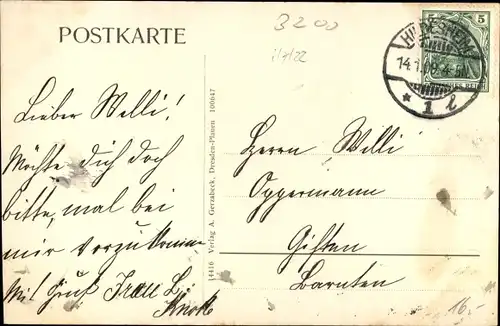 POSTKARTE
3200
Lieber Willi!
Möchte dich doch
bitte, mal bei
mir vorzukommen
Mit Gruß
14416 Verlag A. Gerzabeck, Dresden-Plauen 100647
HILDESHEIM
14.1.09. 4-5N.
* 1 l
5 5
Herrn Willi
Oppermann
Giften
Barnten
16.-